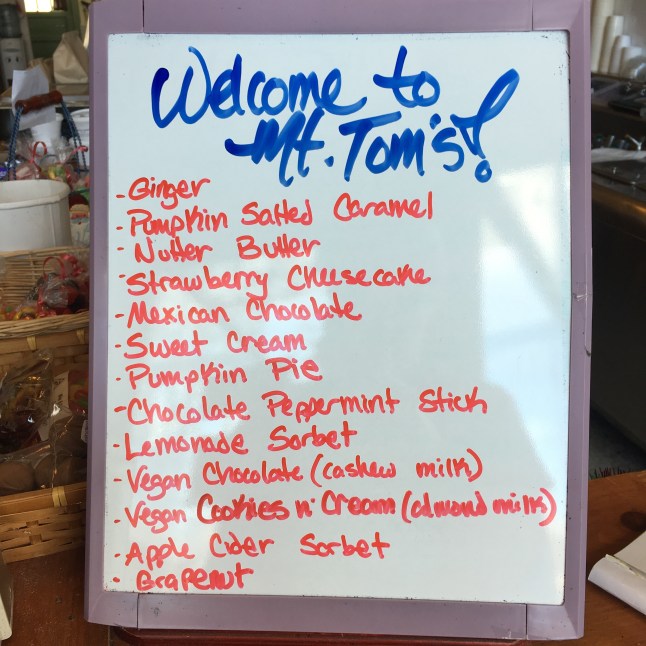 Welcome to
Mt. Tom's!
- Ginger
- Pumpkin Salted Caramel
- Nutter Butter
- Strawberry Cheesecake
- Mexican Chocolate
- Sweet Cream
- Pumpkin Pie
- Chocolate Peppermint Stick
- Lemonade Sorbet
- Vegan Chocolate (cashew milk)
- Vegan Cookies n' Cream (almond milk)
- Apple Cider Sorbet
- Grapenut